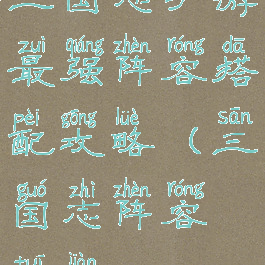 zuì qiáng zhèn róng dā
最强阵容搭
pèi gōng lüè sān
配攻略（三
guó zhì zhèn róng
国志阵容
tuī jiàn